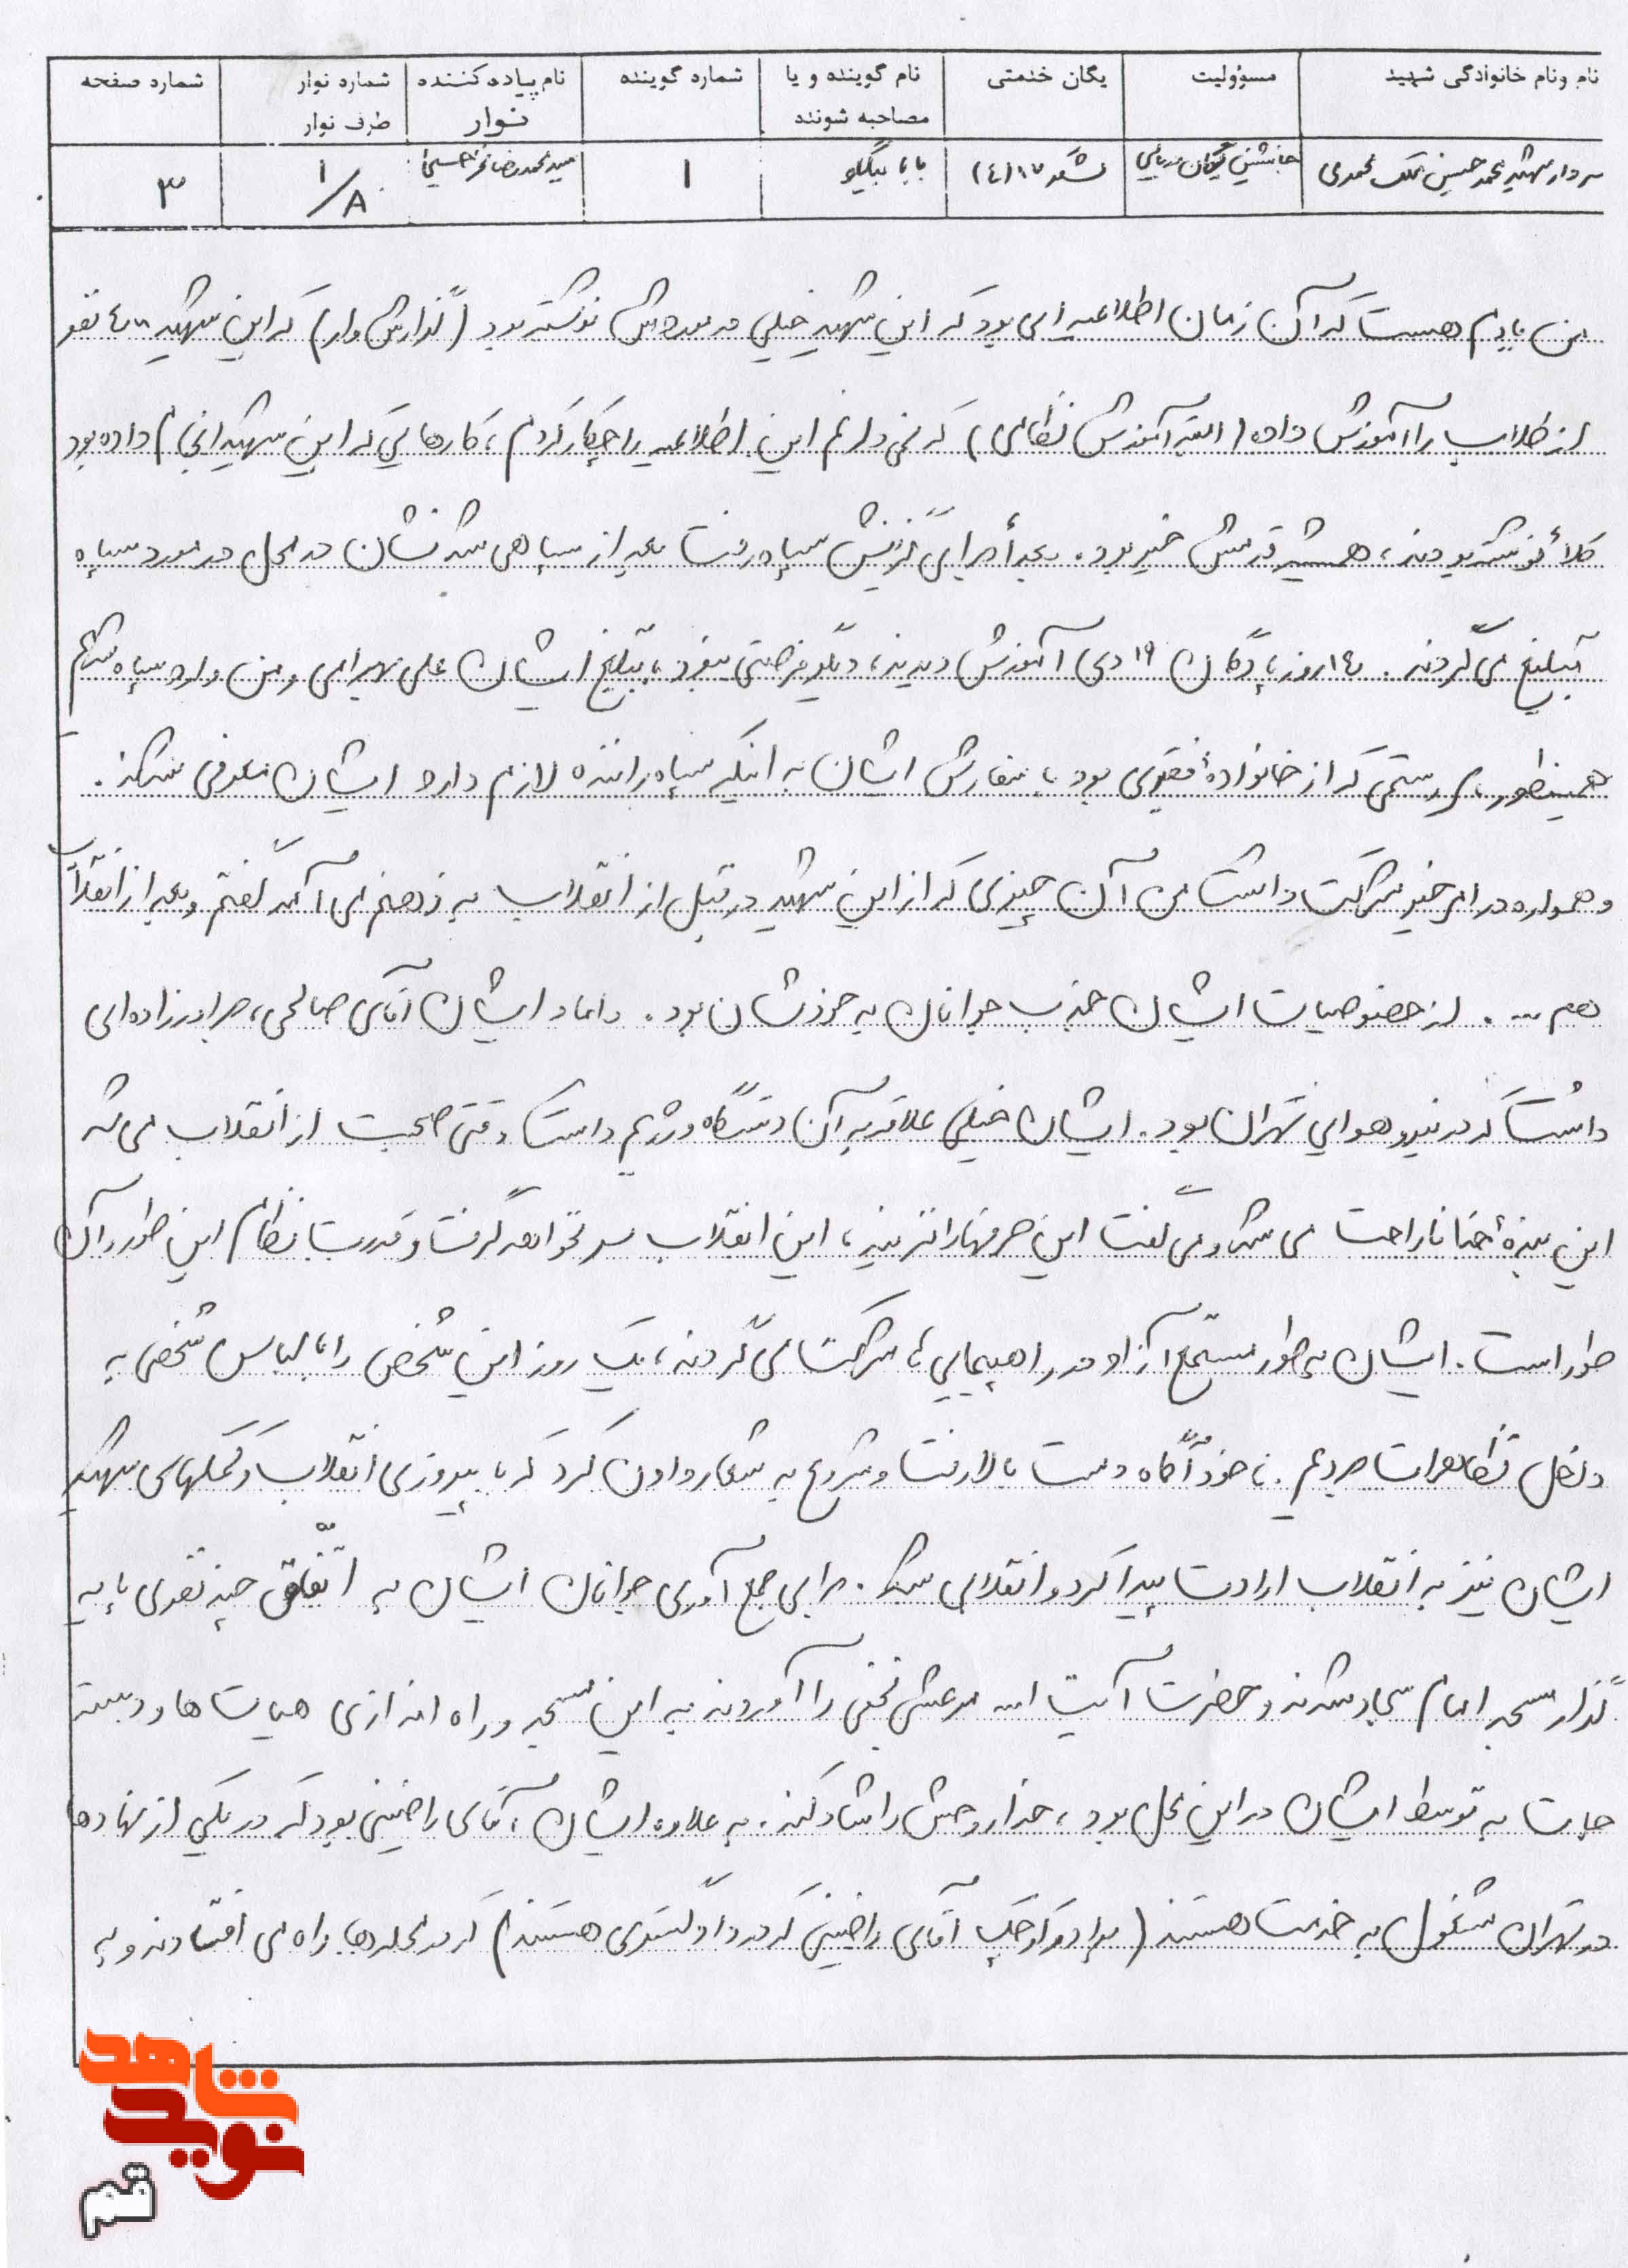 نام ونام خانوادگی شهید
مسؤولیت
یگان خدمتی
نام گوینده و یا مصاحبه شونده
شماره گوینده
نام پیاده کننده نوار
شماره نوار طرف نوار
شماره صفحه
سردار شهید محمد حسین ملک محمدی
جانشین گردان
لشگر ۱۷ (٤)
بابا بیگلو
۱
۱/A
۳
من یادم هست که آن زمان اطلاعیه ای بود که این شهید خیلی در موردش نوشته بود (گزارش وار) که این شهید نفر
از طلاب را آموزش داده (البته آموزش نظامی) که نمی دانم این اطلاعیه را چکار کردم، کارهایی که این شهید انجام داده بود
کلاً نوشته بودند، همیشه قدمش خیر بود. بعداً برای گزینش سپاه رفت بعد از سپاهی شدنشان در محل در مورد سپاه
تبلیغ می کردند. روز پادگان ۱۹ دی آموزش دیدند، دیگر فرصتی نبود، با تبلیغ ایشان علی بهرامی و من وارد سپاه شدیم
همینطور رستمی که از خانوادهٔ فقیری بود با سفارش ایشان به اینکه سپاه راننده لازم دارد ایشان معرفی شدند.
و همواره در امر خیر شرکت داشت من آن چیزی که از این شهید در قبل از انقلاب به ذهنم می آمد گفتم و بعد از انقلاب
هم .... از خصوصیات ایشان جذب جوانان به خودشان بود. داماد ایشان آقای صالحی، برادرزاده ای
داشت که در نیرو هوایی تهران بود. ایشان خیلی علاقه به آن دستگاه و رژیم داشت وقتی صحبت از انقلاب می شد
این بندهٔ خدا ناراحت می شد و می گفت این حرفها را نزنید، این انقلاب سر نخواهد گرفت و قدرت نظام این طور و آن
طور است. ایشان به طور مستمع آزاد در راهپیمایی ها شرکت می کردند، یک روز این شخص را با لباس شخصی به
داخل تظاهرات بردیم. ناخودآگاه دست بالا رفت و شروع به شعار دادن کرد که با پیروزی انقلاب و کمکهای شهید
ایشان نیز به انقلاب ارادت پیدا کرد و انقلابی شد. برای جمع آوری جوانان ایشان به اتّفاق چند نفری پایه
گذار مسجد امام سجاد شدند و حضرت آیت الله مرعشی نجفی را آوردند به این مسجد و راه اندازی هیات ها و دسته
جات به توسط ایشان در این محل بود، خدا روحش را شاد کند. به علاوه ایشان، آقای راضینی بود که در یکی از نهادها
در تهران مشغول به خدمت هستند (برادر کوچک آقای راضینی که در دادگستری هستند) که در محله ها راه می افتادند و به
نوید شاهد
قم